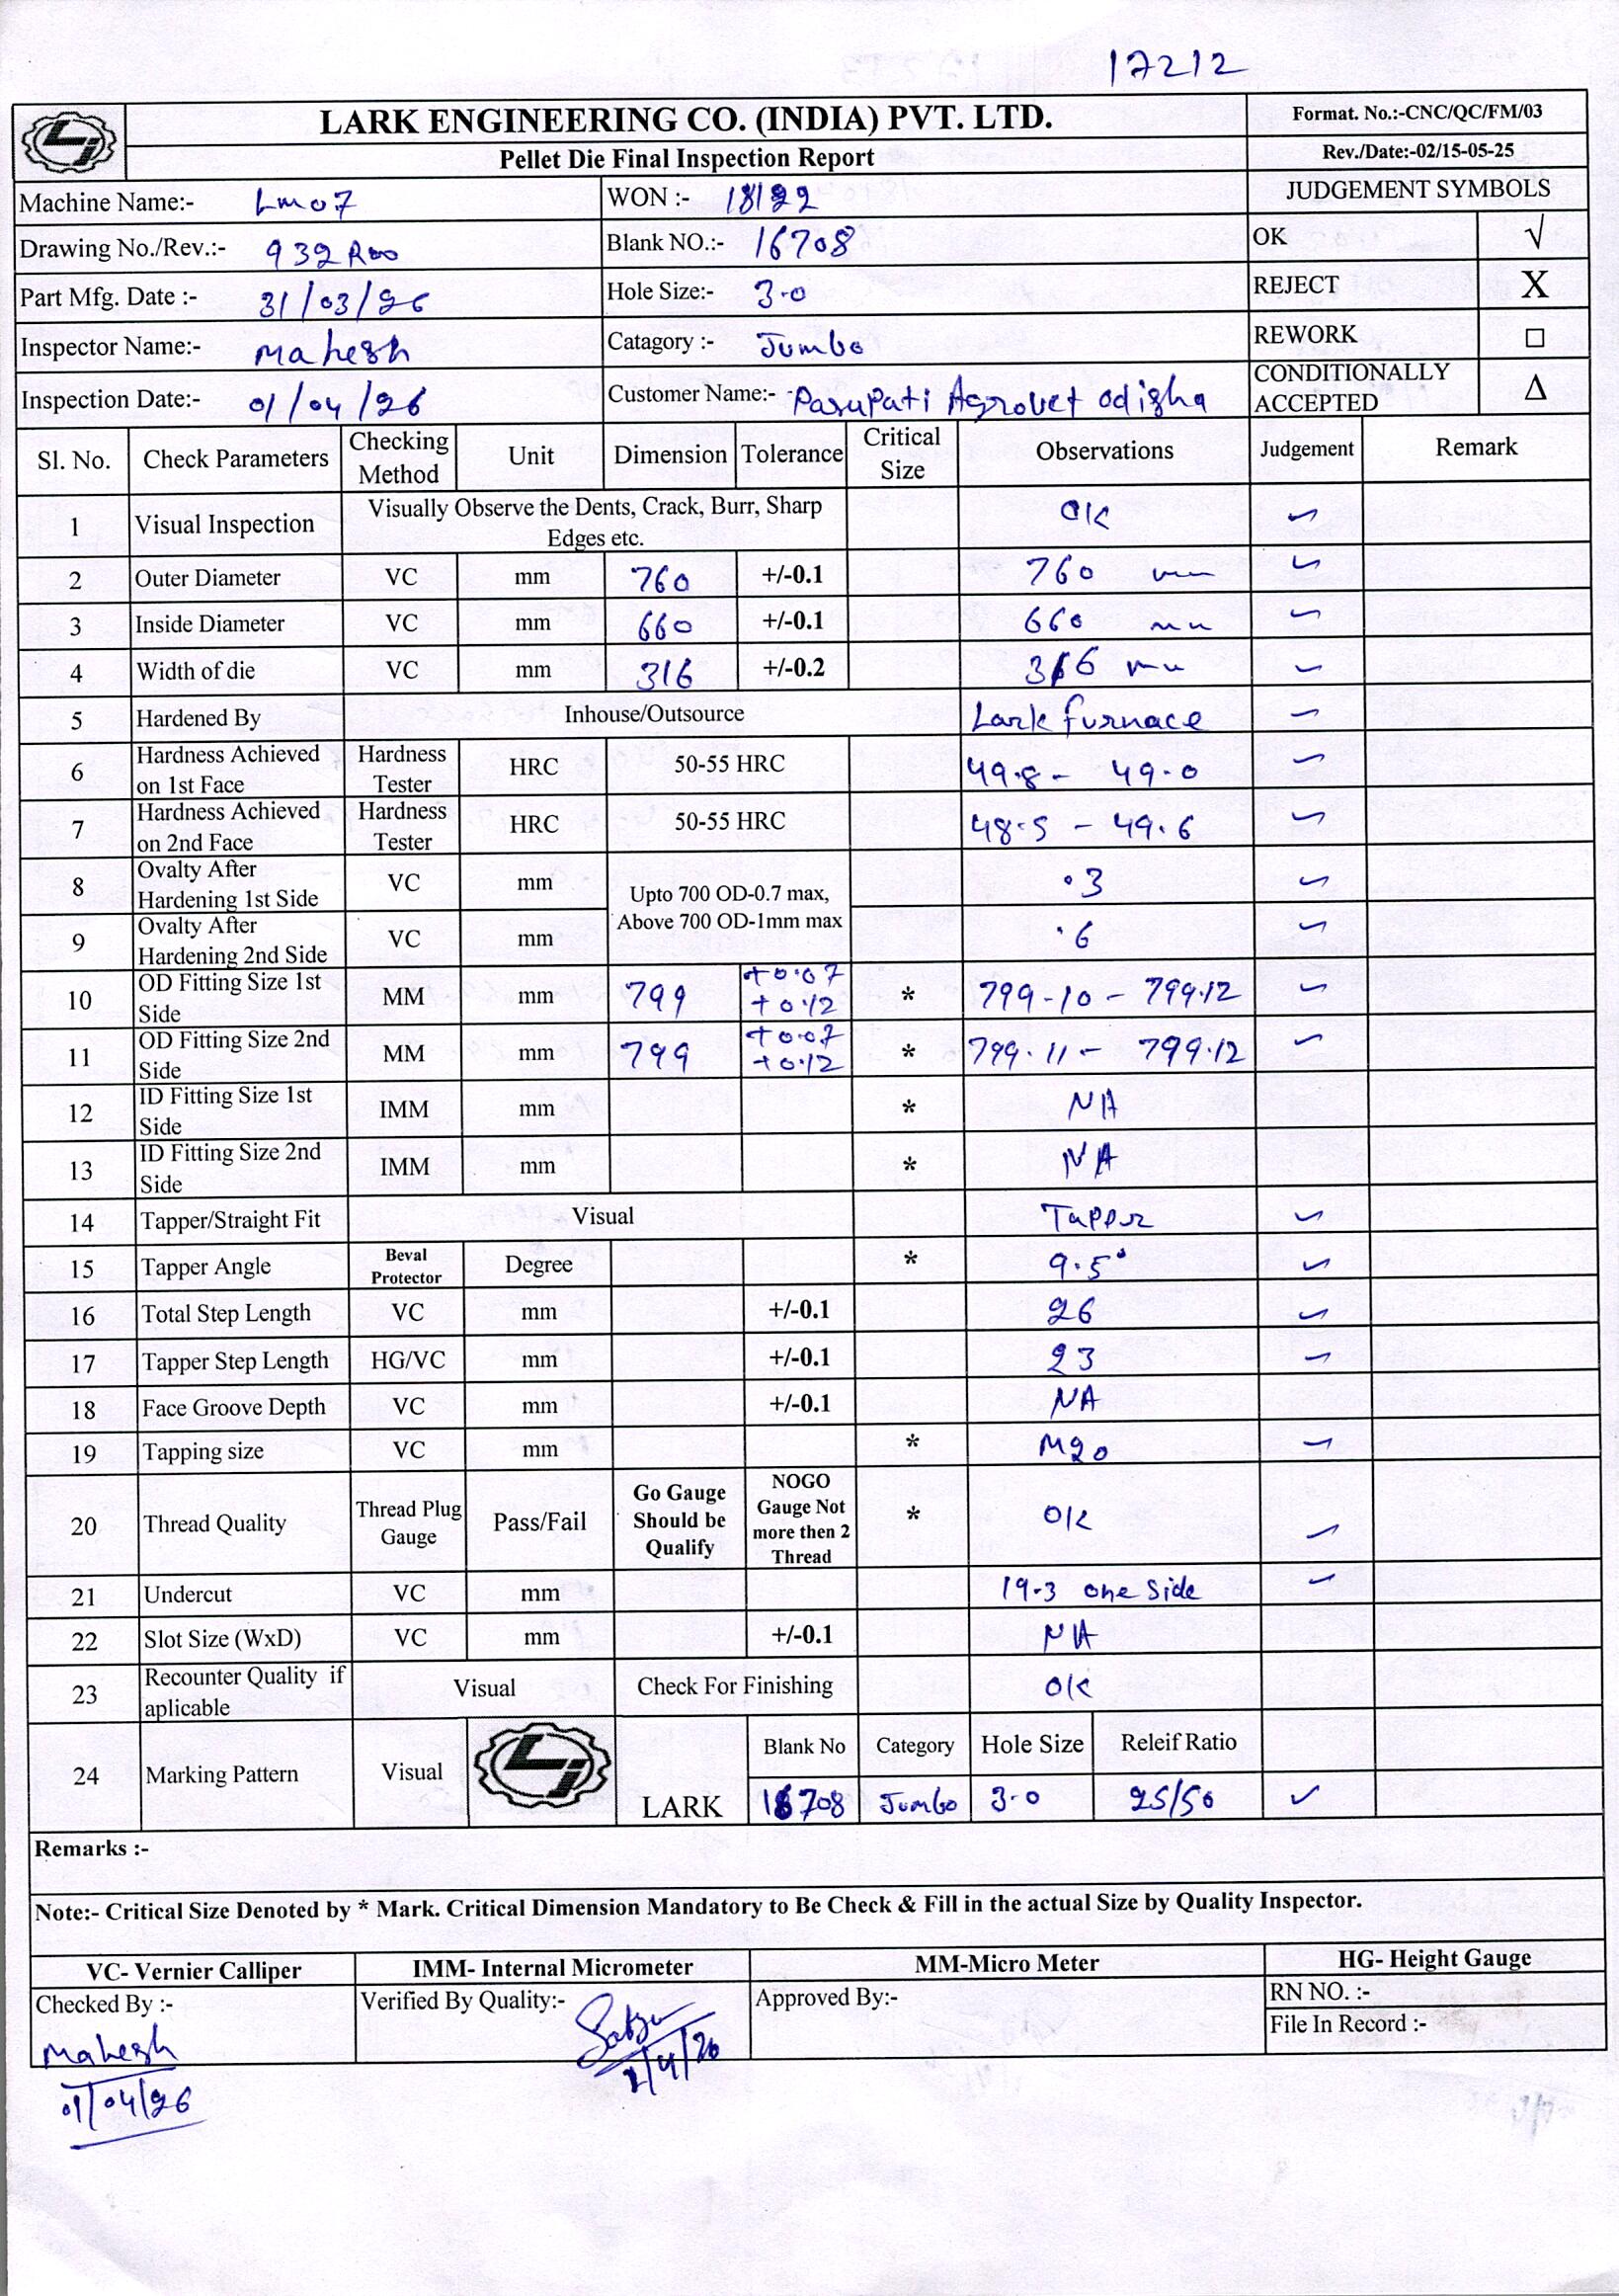 17212
LARK ENGINEERING CO. (INDIA) PVT. LTD.
Format. No.:-CNC/QC/FM/03
Pellet Die Final Inspection Report
Rev./Date:-02/15-05-25
Machine Name:- Lm07 WON :- 18122 JUDGEMENT SYMBOLS
Drawing No./Rev.:- 932 R00 Blank NO.:- 16708 OK √
Part Mfg. Date :- 31/03/26 Hole Size:- 3.0 REJECT X
Inspector Name:- Mahesh Catagory :- Jumbo REWORK □
Inspection Date:- 01/04/26 Customer Name:- Pasupati Agrovet odisha CONDITIONALLY ACCEPTED Δ
Sl. No. Check Parameters Checking Method Unit Dimension Tolerance Critical Size Observations Judgement Remark
1 Visual Inspection Visually Observe the Dents, Crack, Burr, Sharp Edges etc. OK ✓
2 Outer Diameter VC mm 760 +/-0.1 760 mm ✓
3 Inside Diameter VC mm 660 +/-0.1 660 mm ✓
4 Width of die VC mm 316 +/-0.2 316 mm ✓
5 Hardened By Inhouse/Outsource Lark furnace ✓
6 Hardness Achieved on 1st Face Hardness Tester HRC 50-55 HRC 49.8 - 49.0 ✓
7 Hardness Achieved on 2nd Face Hardness Tester HRC 50-55 HRC 48.5 - 49.6 ✓
8 Ovalty After Hardening 1st Side VC mm Upto 700 OD-0.7 max, Above 700 OD-1mm max .3 ✓
9 Ovalty After Hardening 2nd Side VC mm .6 ✓
10 OD Fitting Size 1st Side MM mm 799 +0.07 +0.12 * 799.10 - 799.12 ✓
11 OD Fitting Size 2nd Side MM mm 799 +0.07 +0.12 * 799.11 - 799.12 ✓
12 ID Fitting Size 1st Side IMM mm * NA
13 ID Fitting Size 2nd Side IMM mm * NA
14 Tapper/Straight Fit Visual Tapper ✓
15 Tapper Angle Beval Protector Degree * 9.5° ✓
16 Total Step Length VC mm +/-0.1 26 ✓
17 Tapper Step Length HG/VC mm +/-0.1 23 ✓
18 Face Groove Depth VC mm +/-0.1 NA
19 Tapping size VC mm * M20 ✓
20 Thread Quality Thread Plug Gauge Pass/Fail Go Gauge Should be Qualify NOGO Gauge Not more then 2 Thread * OK ✓
21 Undercut VC mm 19.3 one side ✓
22 Slot Size (WxD) VC mm +/-0.1 NA
23 Recounter Quality if aplicable Visual Check For Finishing OK
24 Marking Pattern Visual LARK Blank No Category Hole Size Releif Ratio
16708 Jumbo 3.0 25/50 ✓
Remarks :-
Note:- Critical Size Denoted by * Mark. Critical Dimension Mandatory to Be Check & Fill in the actual Size by Quality Inspector.
VC- Vernier Calliper IMM- Internal Micrometer MM-Micro Meter HG- Height Gauge
Checked By :- Verified By Quality:- Approved By:- RN NO. :-
File In Record :-
Mahesh
01/04/26